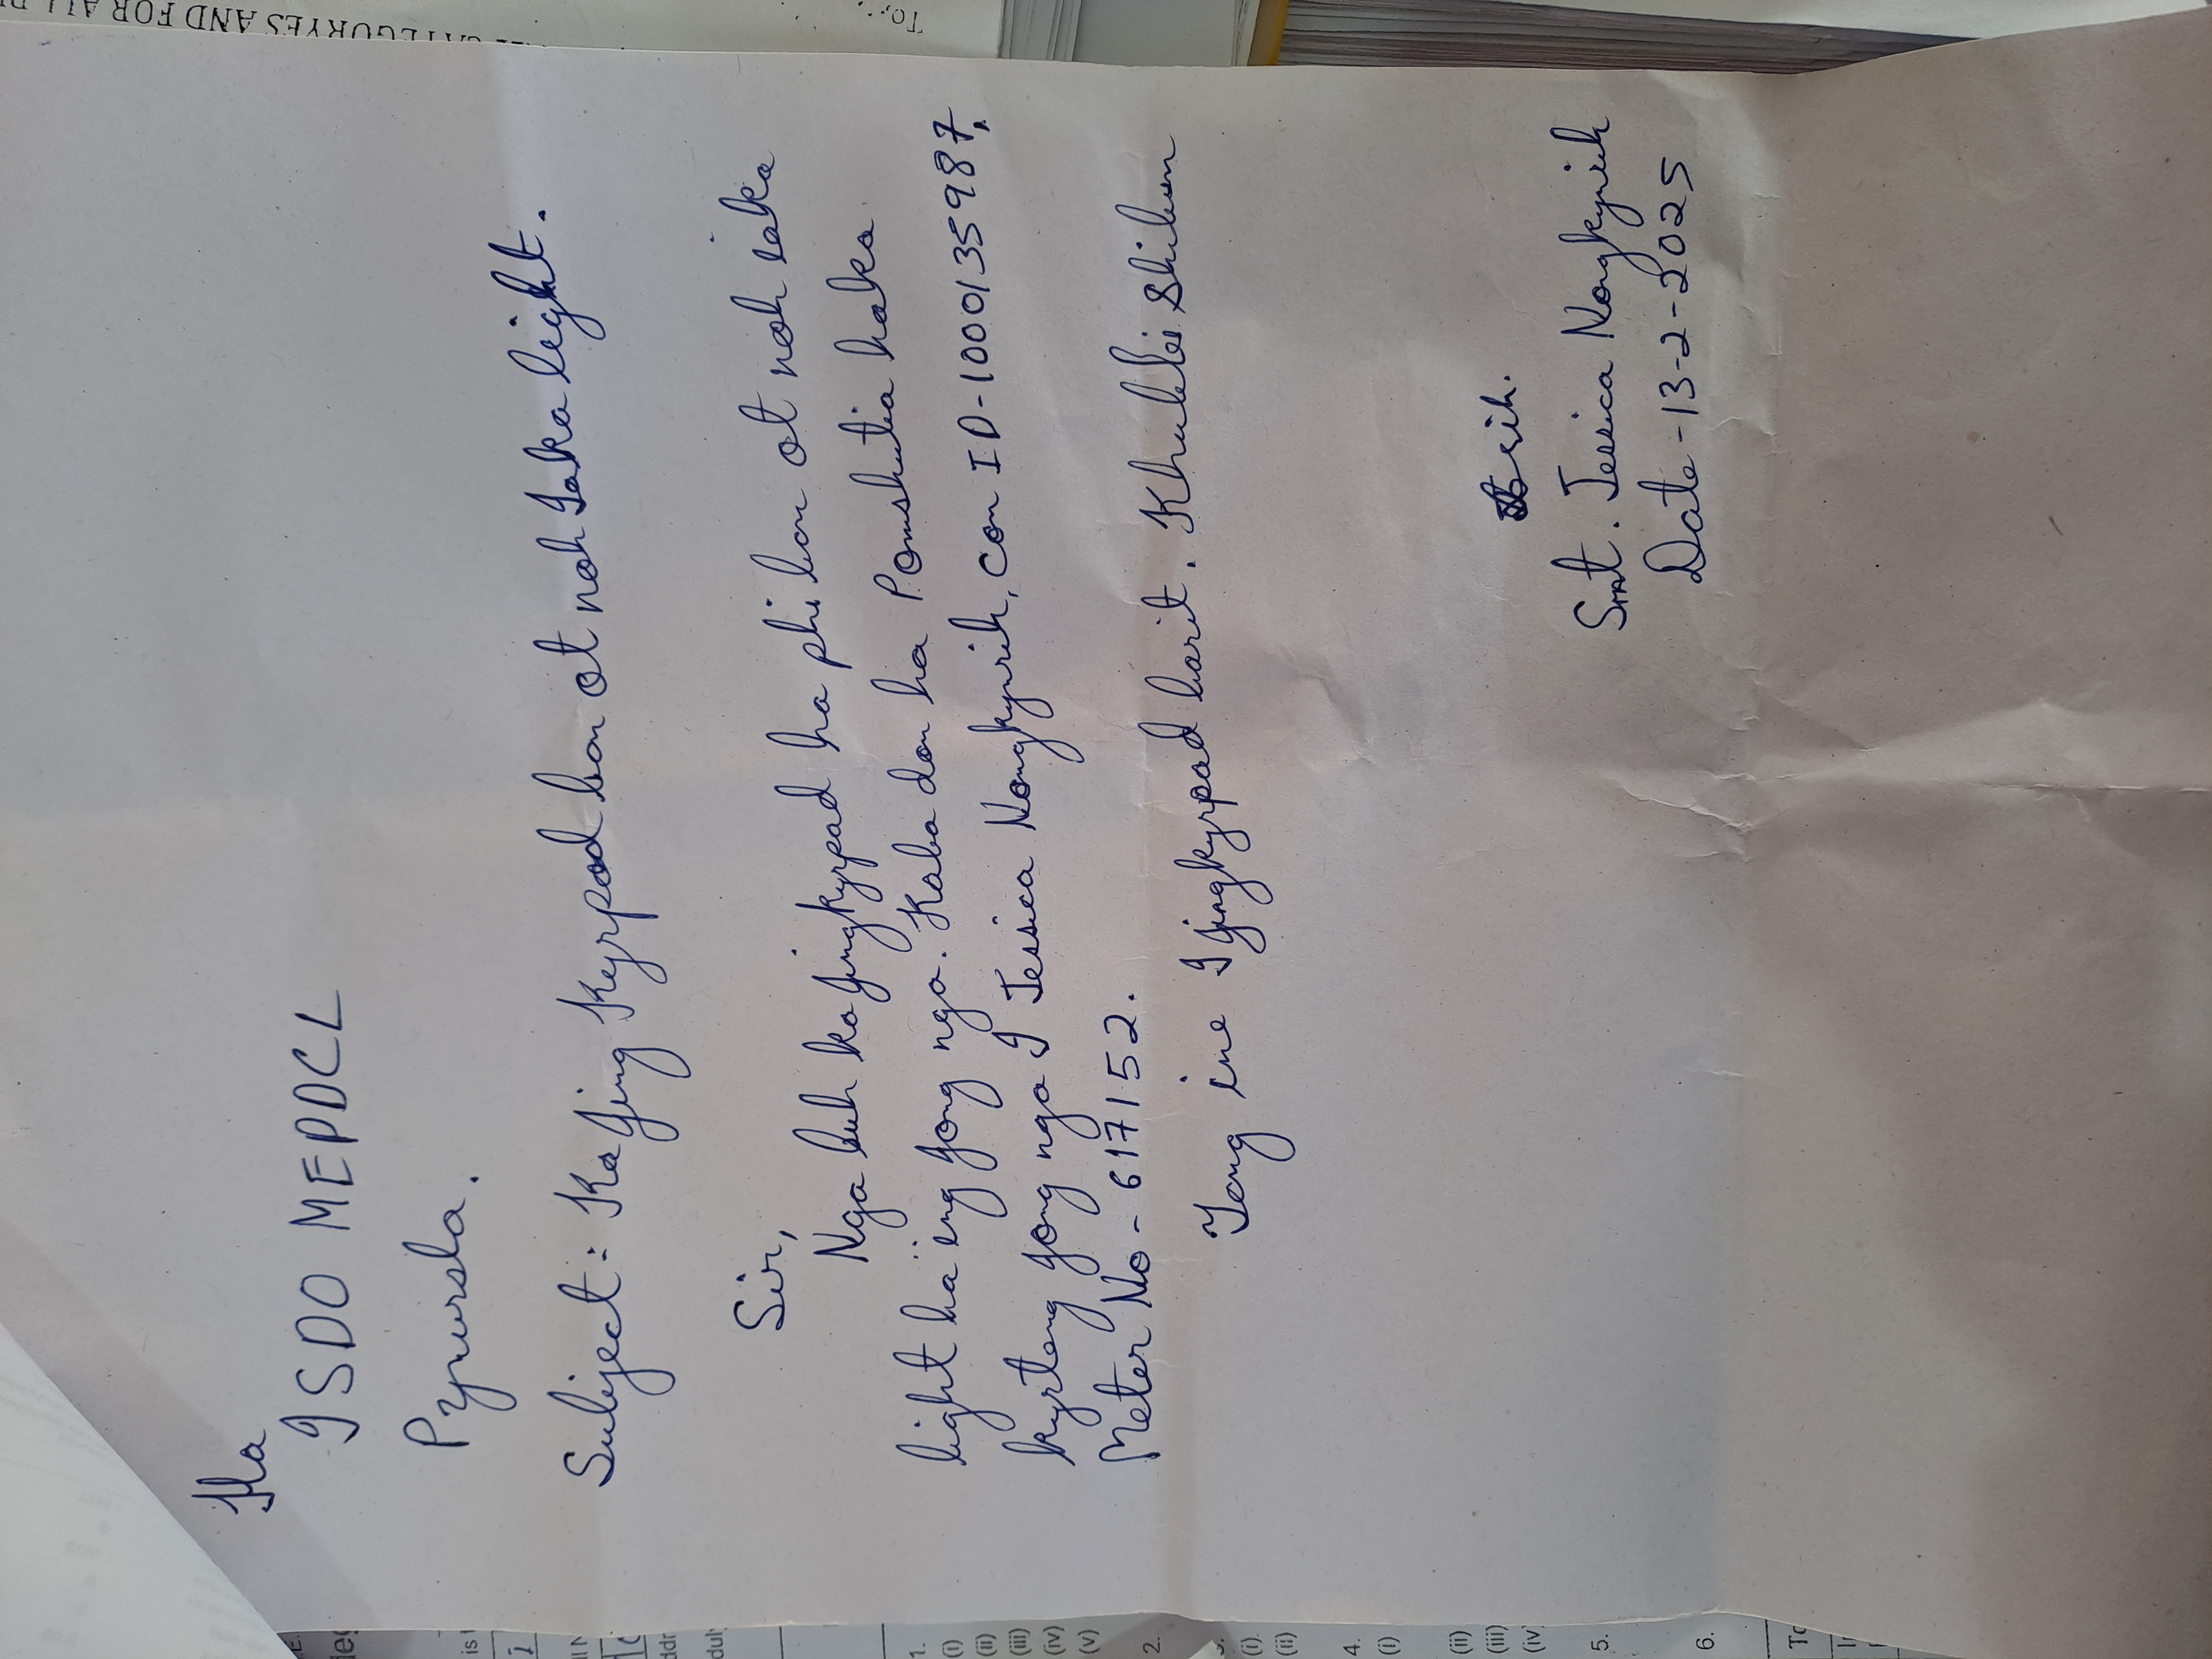 Ha
I SDO MEPDCL
Pynursla.
Subject:- Ka Jing Kyrpad ban ot noh Iaka light.
Sir,
Nga buh ka jingkyrpad ha phi ban ot noh iaka
light ha ïeng jong nga. Kaba don ha Pomshutia haka
kyrteng jong nga I Jessica Nongkynrih, con ID-1000135987,
Meter No- 617152.
Tang ine I jingkyrpad barit. Khublei Shibun
Sih.
Smt. Jessica Nongkynrih
Date-13-2-2025
To,
CATEGORYES AND FOR ALL
1.
(i)
(ii)
(iii)
(iv)
(v)
2.
(i)
(ii)
4.
(i)
(ii)
(iii)
(iv)
5.
6.